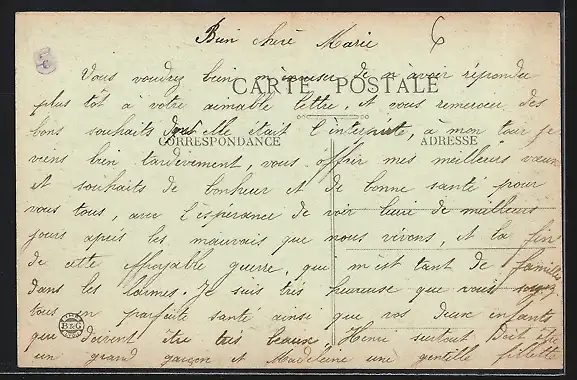 Bien chère Marie
6
Vous voudrez bien m'excuser de n'avoir répondu
CARTE POSTALE
plus tôt à votre aimable lettre, et vous remercier des
bons souhaits dont elle était l'interprète, à mon tour je
CORRESPONDANCE ADRESSE
viens bien tardivement, vous offrir mes meilleurs vœux
et souhaits de bonheur et de bonne santé pour
vous tous, avec l'espérance de voir luire de meilleurs
jours après les mauvais que nous vivons, et la fin
de cette effroyable guerre, qui met tant de familles
dans les larmes. Je suis très heureuse que vous soyez
tous en parfaite santé ainsi que vos deux enfants
B&G
que doivent être très beaux Henri surtout doit être
un grand garçon et Madeleine une gentille fillette